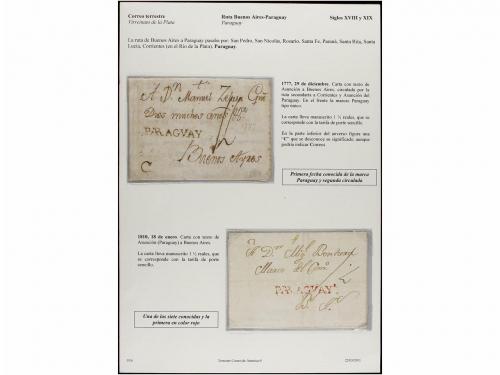 Correo terrestre
Virreinato de la Plata
Ruta Buenos Aires-Paraguay
Paraguay
Siglos XVIII y XIX
La ruta de Buenos Aires a Paraguay pasaba por: San Pedro, San Nicolás, Rosario, Santa Fe, Paraná, Santa Rita, Santa
Lucía, Corrientes (en el Río de la Plata), Paraguay.
A Dn Manuel
Dios muchos años
PARAGUAY
Buenos Ayres
C
1777, 29 de diciembre. Carta con texto de
Asunción a Buenos Aires, circulada por la
ruta secundaria a Corrientes y Asunción del
Paraguay. En el frente la marca Paraguay
tipo único.
La carta lleva manuscrito 1 ½ reales, que se
corresponde con la tarifa de porte sencillo.
En la parte inferior del anverso figura una
"C" que se desconoce su significado, aunque
podría indicar Correos
Primera fecha conocida de la marca
Paraguay y segunda circulada
1800, 18 de enero. Carta con texto de
Asunción (Paraguay) a Buenos Aires.
La carta lleva manuscrito 1 ½ reales, que
se corresponde con la tarifa de porte
sencillo.
Una de las siete conocidas y la
primera en color rojo
A Dn
PARAGUAY